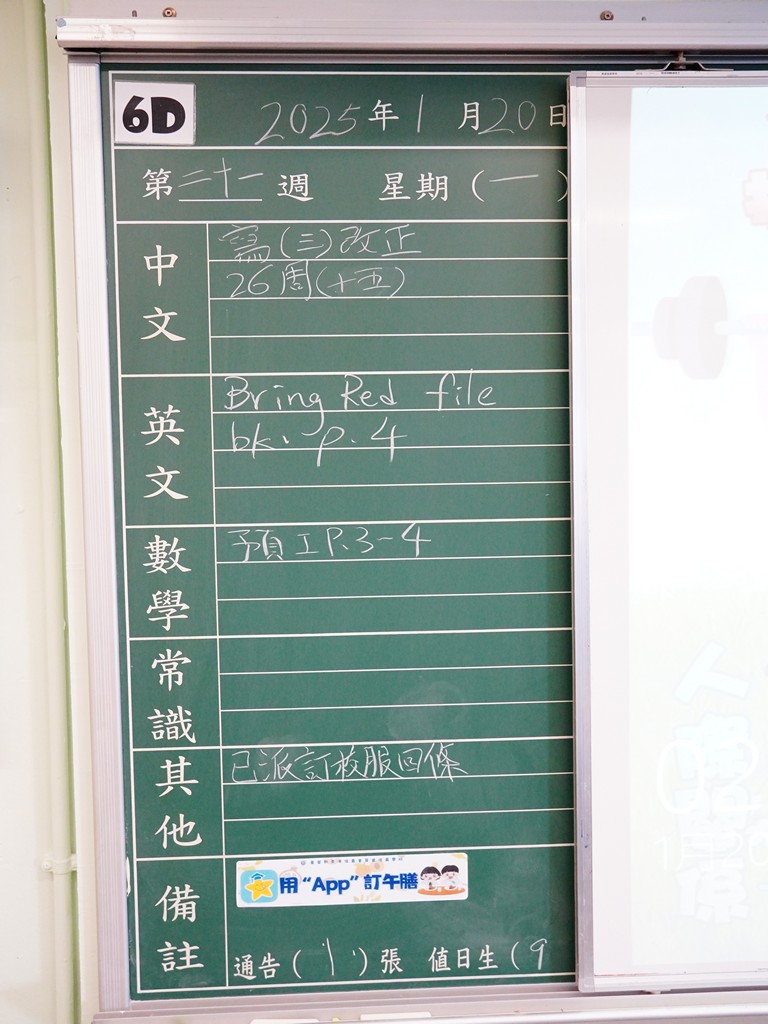 6D
2025年1月20日
第二十一週 星期(一)
中文
寫(三)改正
26周(十五)
英文
Bring Red file
bk. p.4
數學
預工P.3-4
常識
其他
已派訂校服回條
備註
用“App”訂午膳
通告(1)張 值日生(9